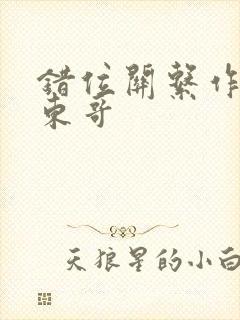 錯位關繫作
東哥
天狼星的小白